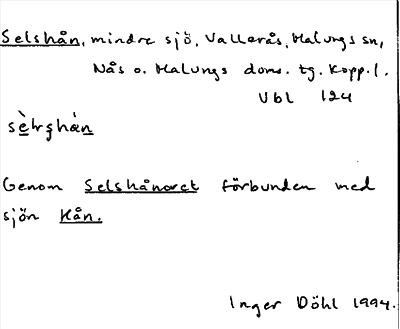 Selshån, mindre sjö, Vallerås, Malungs sn,
Nås o. Malungs doms. tg. Kopp. l.
Vbl 124
Genom Selshånoret förbunden med
sjön Hån.
Inger Döhl 1994.